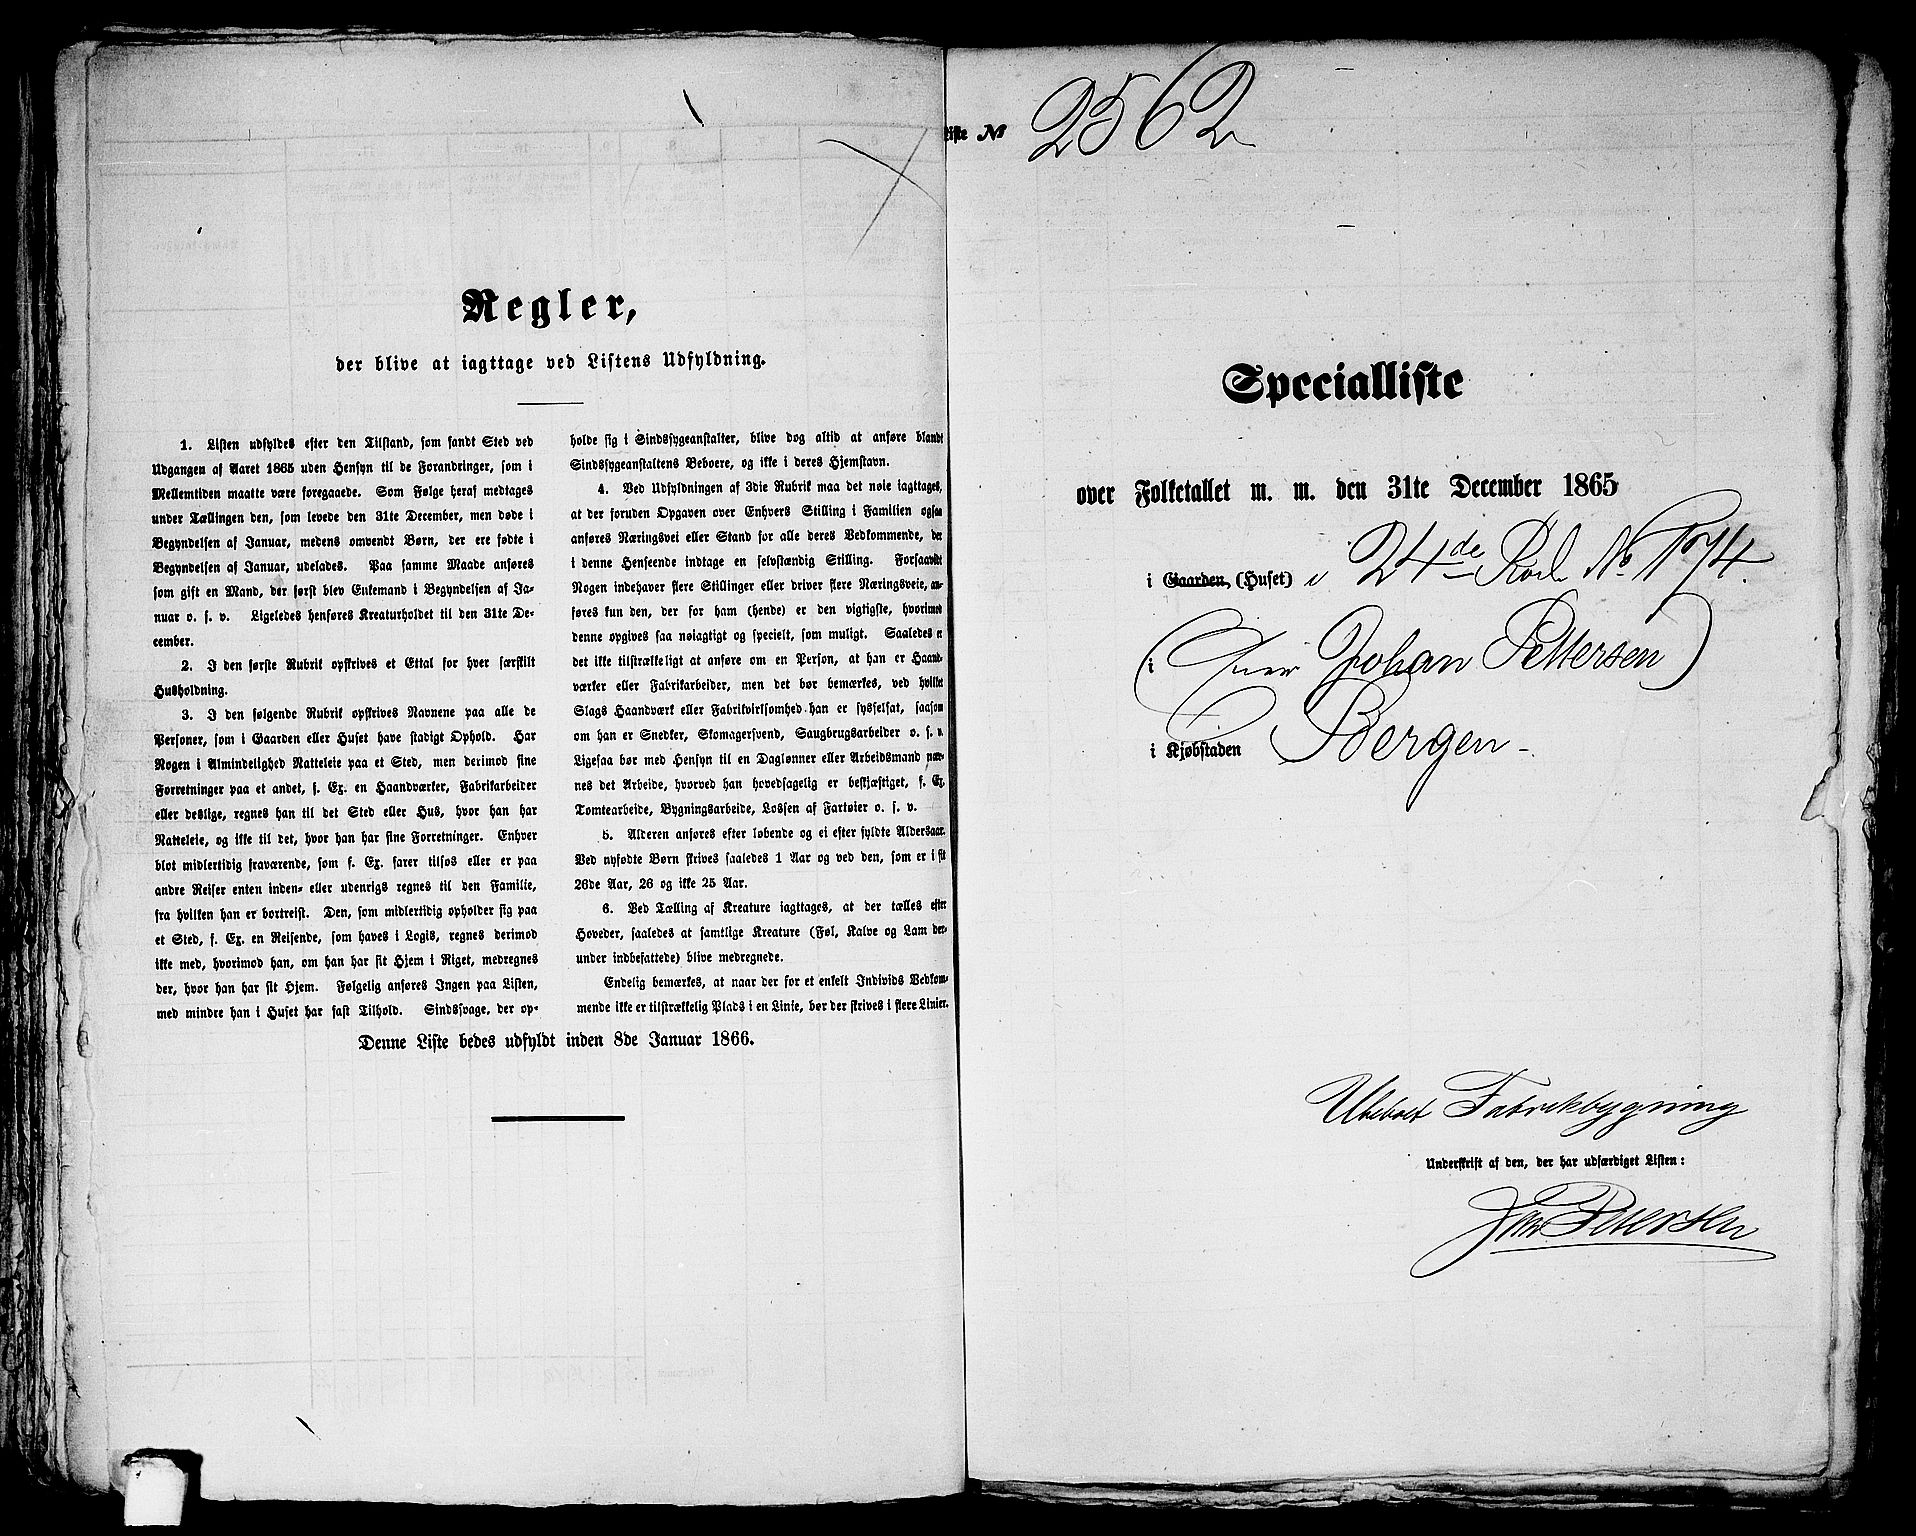 Regler,
der blive at iagttage ved Listens Udfyldning.
1. Listen udfyldes efter den Tilstand, som fandt Sted ved
Udgangen af Aaret 1865 uden Hensyn til de Forandringer, som i
Mellemtiden maatte være foregaaede. Som Følge heraf medtages
under Tællingen den, som levede den 31te December, men døde i
Begyndelsen af Januar, medens omvendt Børn, der ere fødte i
Begyndelsen af Januar, udelades. Paa samme Maade anføres
som gift en Mand, der først blev Enkemand i Begyndelsen af Ja-
nuar o. s. v. Ligeledes henføres Kreaturholdet til den 31te De-
cember.
2. I den første Rubrik opskrives et Ettal for hver særskilt
Husholdning.
3. I den følgende Rubrik opskrives Navnene paa alle de
Personer, som i Gaarden eller Huset have stadigt Ophold. Har
Nogen i Almindelighed Natteleie paa et Sted, men derimod sine
Forretninger paa et andet, f. Ex. en Haandværker, Fabrikarbeider
eller deslige, regnes han til det Sted eller Hus, hvor han har
Natteleie, og ikke til det, hvor han har sine Forretninger. Enhver
blot midlertidig fraværende, som f. Ex. farer tilsøs eller er paa
andre Reiser enten inden- eller udenrigs regnes til den Familie,
fra hvilken han er bortreist. Den, som midlertidig opholder sig paa
et Sted, f. Ex. en Reisende, som haves i Logis, regnes derimod
ikke med, hvorimod han, om han har sit Hjem i Riget, medregnes
der, hvor han har sit Hjem. Følgelig anføres Ingen paa Listen,
med mindre han i Huset har fast Tilhold. Sindssvage, der op-
holde sig i Sindssygeanstalter, blive dog altid at anføre blandt
Sindssygeanstaltens Beboere, og ikke i deres Hjemstavn.
4. Ved Udfyldningen af 3die Rubrik maa det nøie iagttages,
at der foruden Opgaven over Enhvers Stilling i Familien ogsaa
anføres Næringsvei eller Stand for alle deres Vedkommende, der
i denne Henseende indtage en selvstændig Stilling. Forsaavidt
Nogen indehaver flere Stillinger eller driver flere Næringsveie, an-
føres kun den, der for ham (hende) er den vigtigste, hvorimod
denne opgives saa nøiagtigt og specielt, som muligt. Saaledes er
det ikke tilstrækkeligt at anføre om en Person, at han er Haand-
værker eller Fabrikarbeider, men det bør bemærkes, ved hvilket
Slags Haandværk eller Fabrikvirksomhed han er sysselsat, saasom
om han er Snedker, Skomagersvend, Saugbrugsarbeider o. s. v.
Ligesaa bør med Hensyn til en Dagløuner eller Arbeidsmand næv-
nes det Arbeide, hvorved han hovedsagelig er beskjæftiget, f. Ex.
Tomtearbeide, Bygningsarbeide, Lossen af Fartøier o. s. v.
5. Alderen anføres efter løbende og ei efter fyldte Aldersaar.
Ved nyfødte Børn skrives saaledes 1 Aar og ved den, som er i sit
26de Aar, 26 og ikke 25 Aar.
6. Ved Tælling af Kreature iagttages, at der tælles efter
Hoveder, saaledes at samtlige Kreature (Føl, Kalve og Lam der-
under indbefattede) blive medregnede.
Endelig bemærkes, at naar der for et enkelt Individs Vedkom-
mende ikke er tilstrækkelig Plads i en Linie, bør der skrives i flere Linier.
Denne Liste bedes udfyldt inden 8de Januar 1866.
Liste № 2562
Specialliste
over Folketallet m. m. den 31te December 1865
i Gaarden, (Huset) i 24de Rode No 174.
i (Eier Johan Pettersen)
i Kjøbstaden Bergen -
Ubeboet Fabrikbygning
Underskrift af den, der har udfærdiget Listen:
Petersen